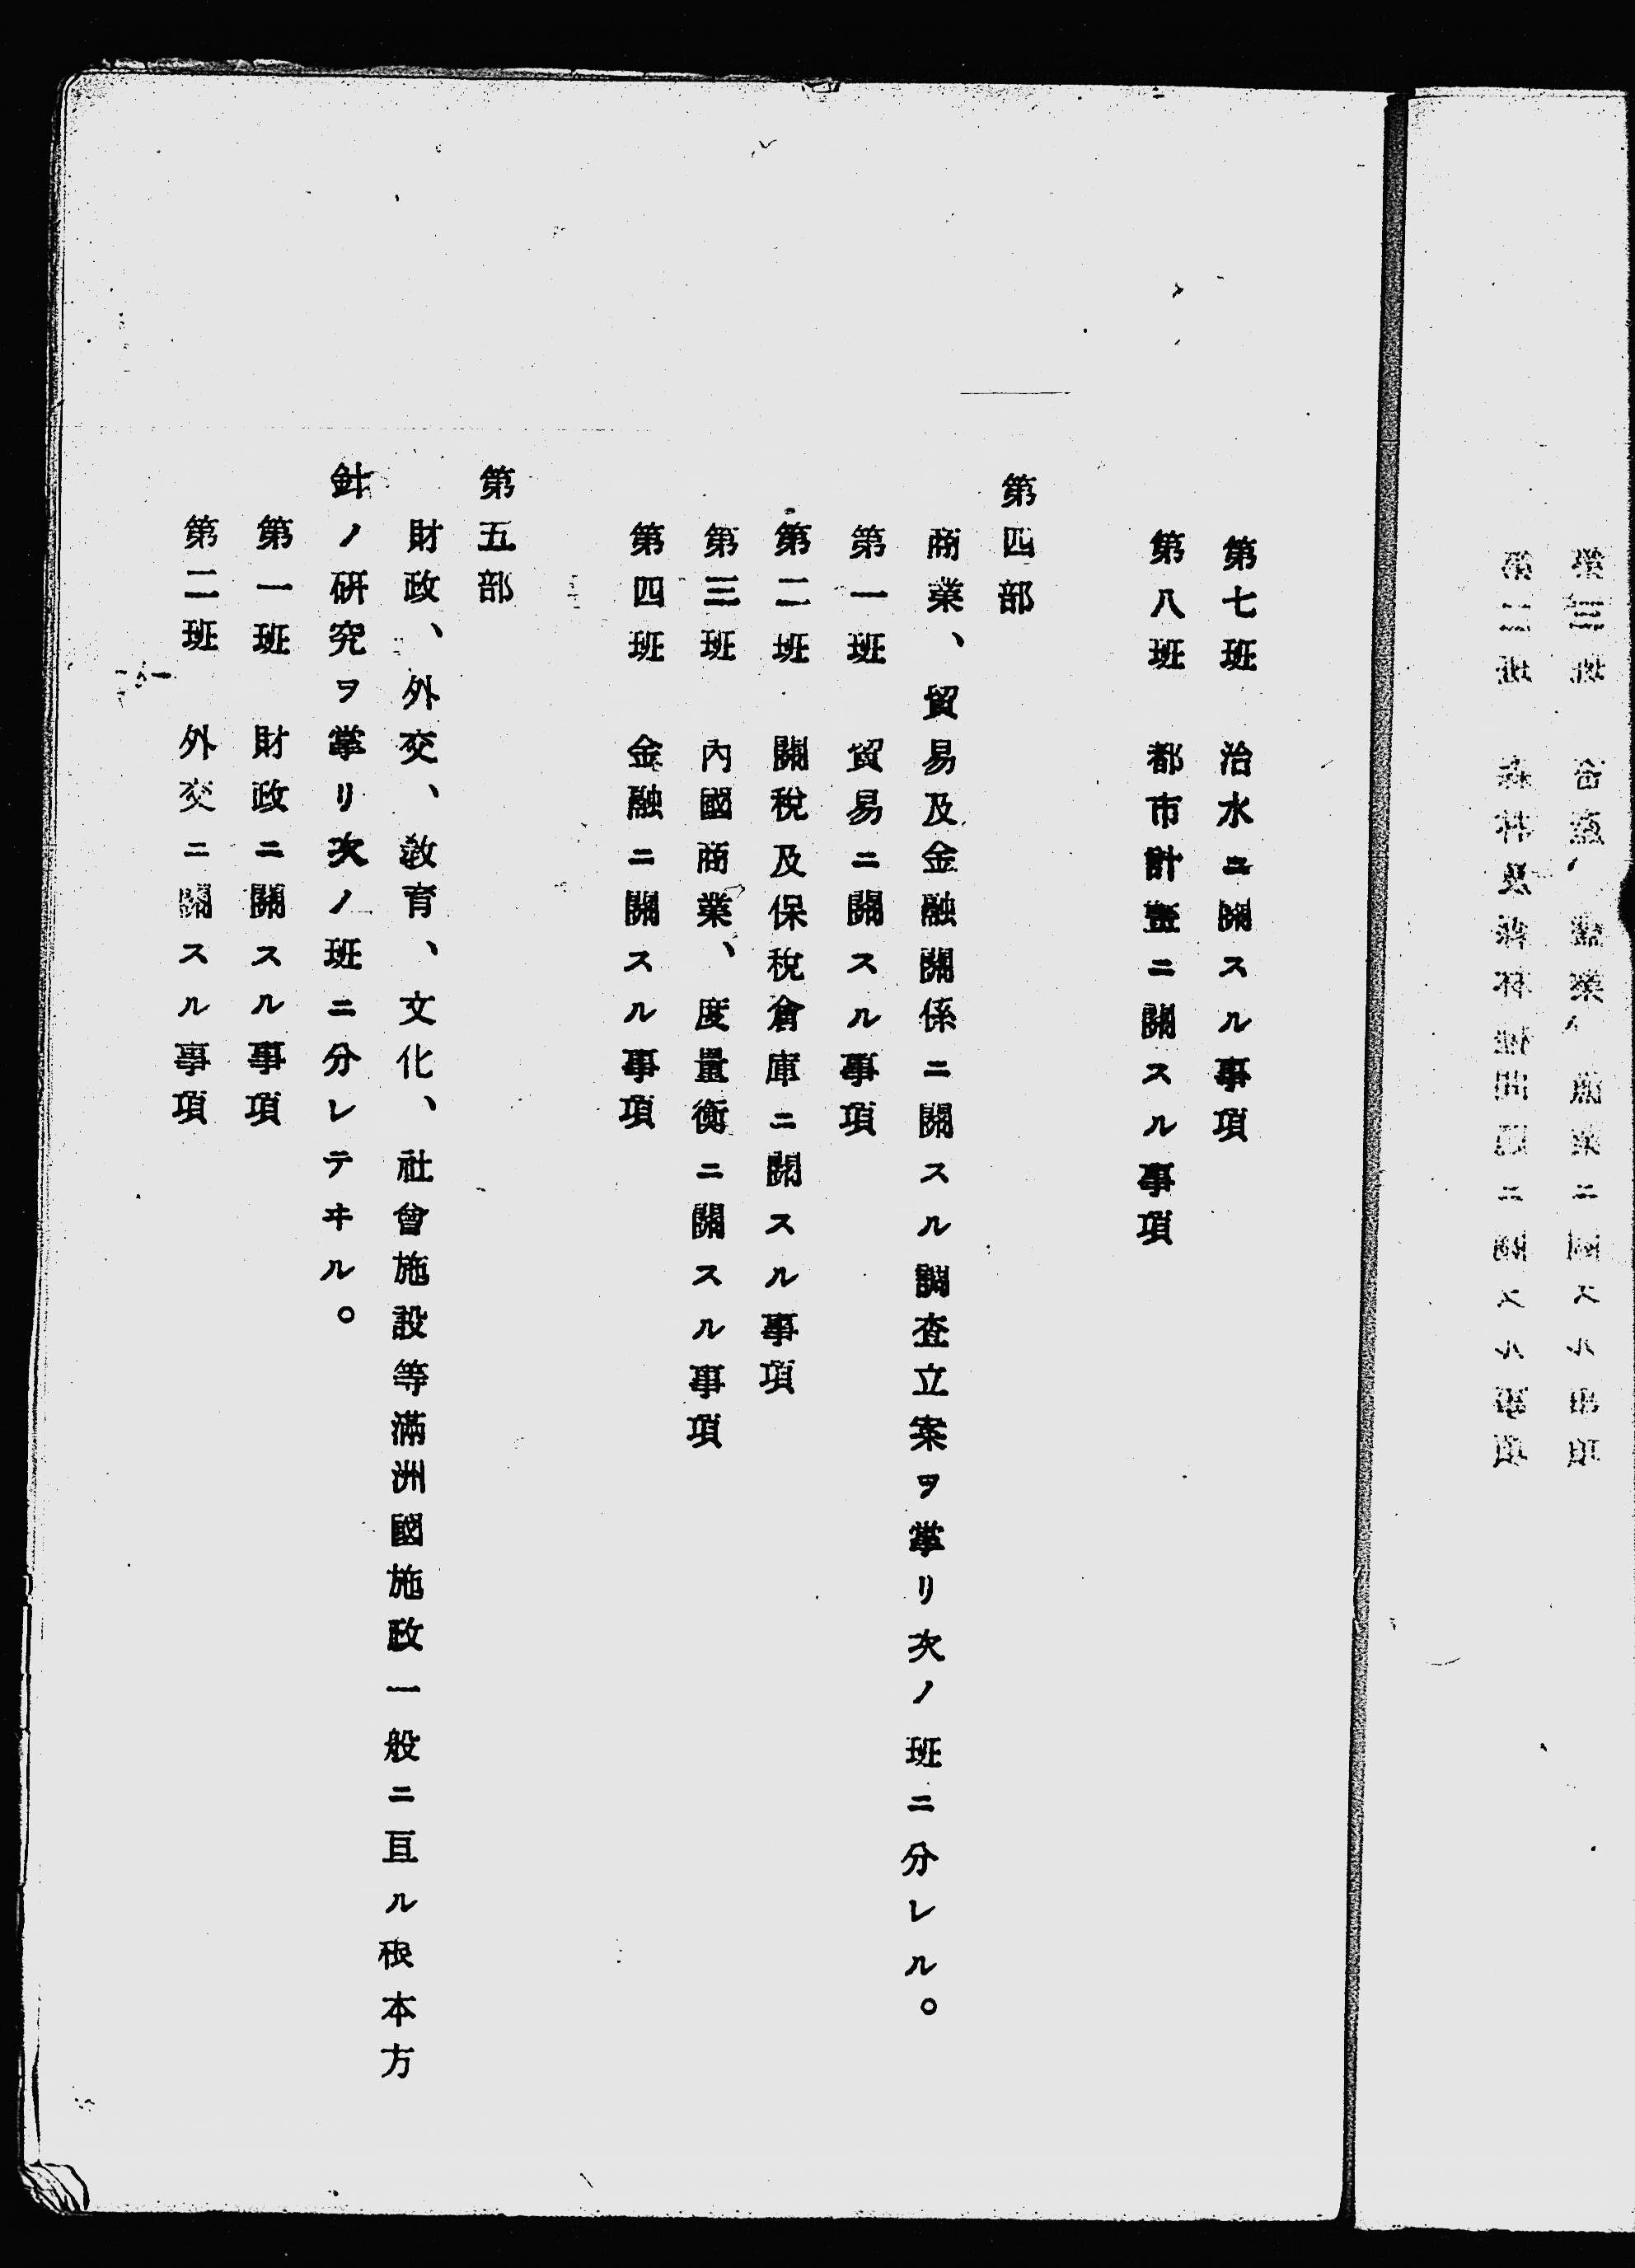 第七班　治水ニ關スル事項
第八班　都市計畫ニ關スル事項
第四部
商業、貿易及金融關係ニ關スル調査立案ヲ掌リ次ノ班ニ分レル。
第一班　貿易ニ關スル事項
第二班　關稅及保稅倉庫ニ關スル事項
第三班　內國商業、度量衡ニ關スル事項
第四班　金融ニ關スル事項
第五部
財政、外交、敎育、文化、社會施設等滿洲國施政一般ニ亘ル根本方
針ノ硏究ヲ掌リ次ノ班ニ分レテヰル。
第一班　財政ニ關スル事項
第二班　外交ニ關スル事項